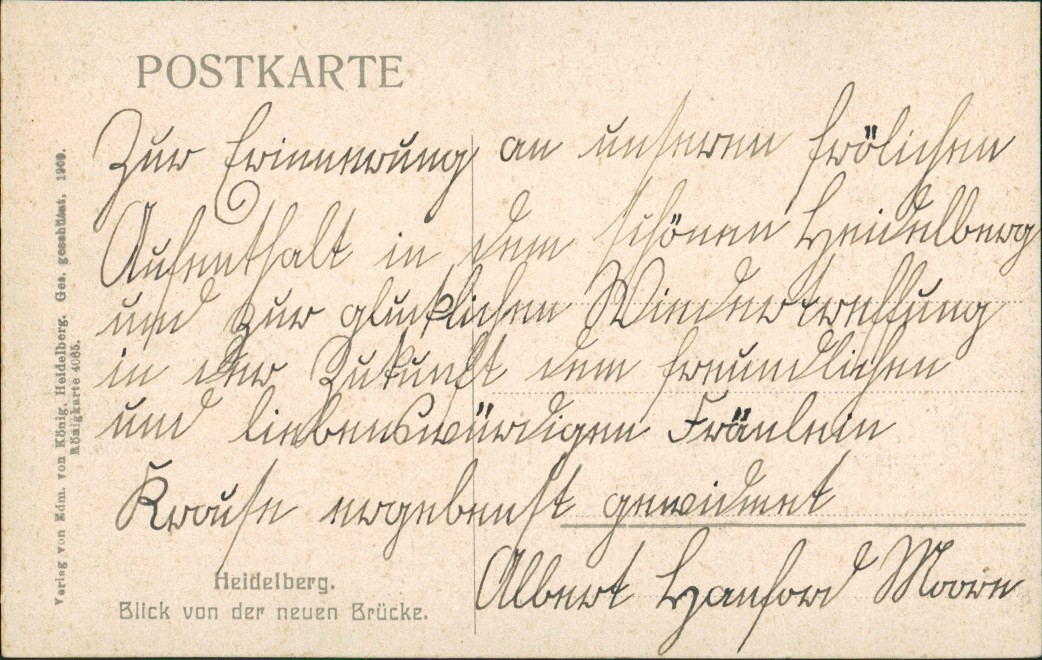 POSTKARTE
Zur Erinnerung an unseren frölichen
Aufenthalt in dem schönen Heidelberg
und zur glucklichen Wiedertreffung
in der Zukunft dem freundlichen
und liebenswürdigen Fräulein
Krause ergebenst gewidmet
Albert Hanford Moore
Heidelberg.
Blick von der neuen Brücke.
Verlag von Edm. von König, Heidelberg. Ges. geschützt. 1909.
Königkarte 4065.